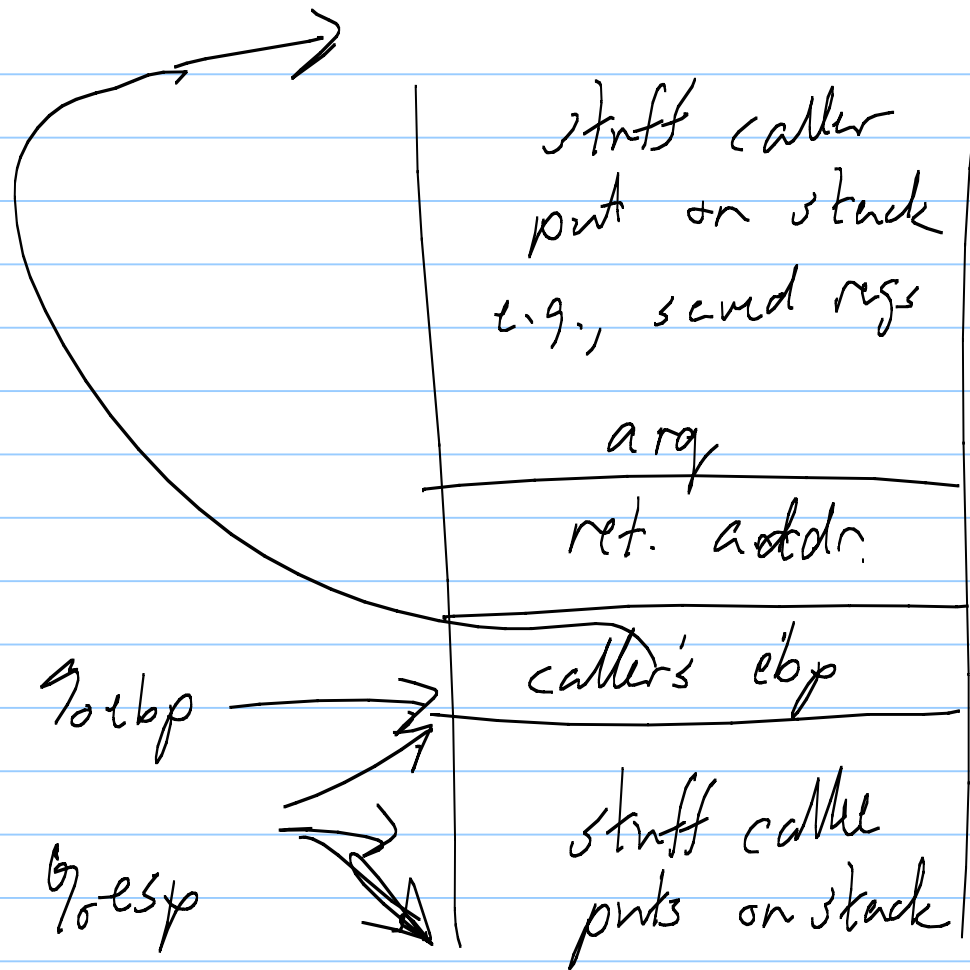 stuff caller
put on stack
e.g., saved regs
arg
ret. addr.
caller's ebp
%ebp
stuff callee
puts on stack
%esp